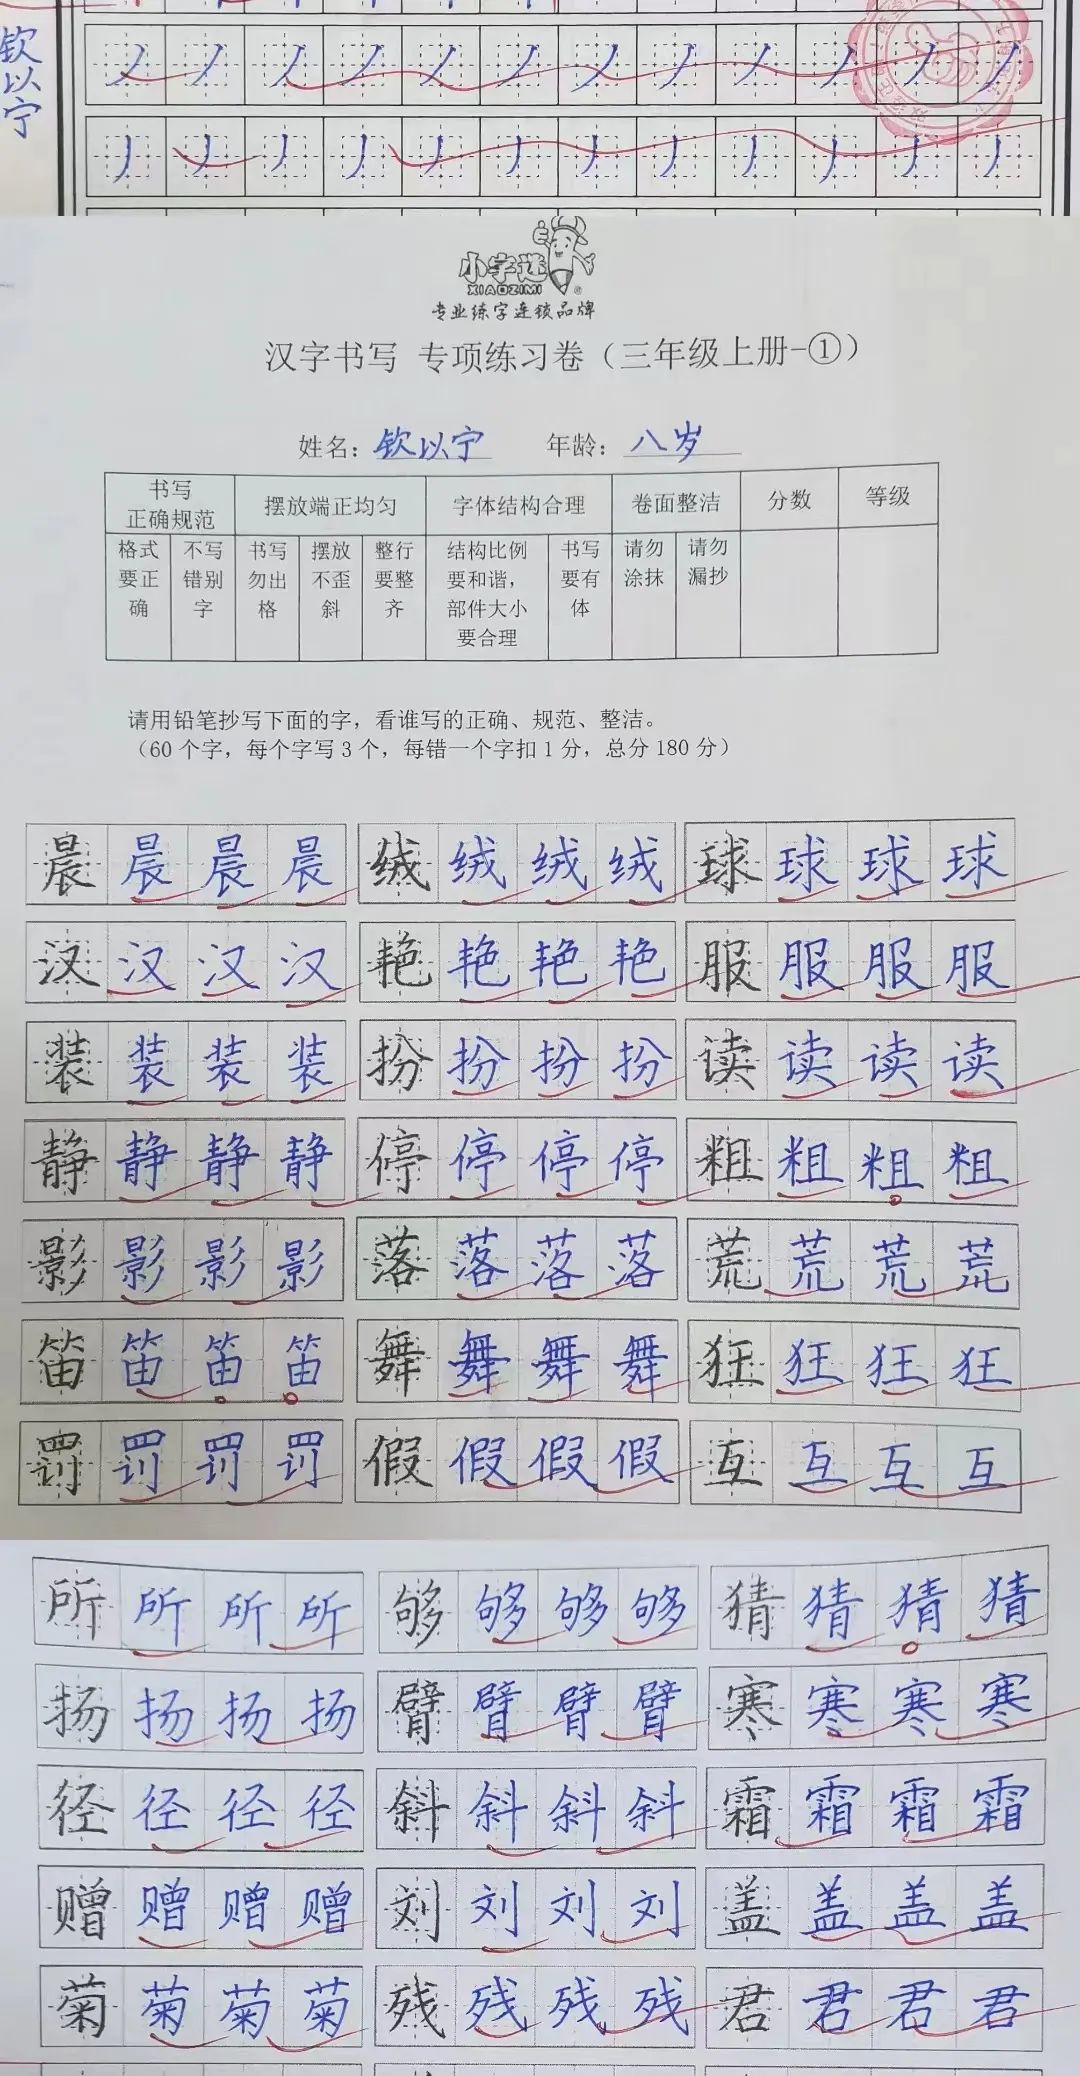 钦以宁
小字迷
XIAOZIMI
专业练字连锁品牌
汉字书写 专项练习卷（三年级上册-①）
姓名：钦以宁 年龄：八岁
书写正确规范 摆放端正均匀 字体结构合理 卷面整洁 分数 等级
格式要正确 不写错别字 书写勿出格 摆放不歪斜 整行要整齐 结构比例要和谐，部件大小要合理 书写要有体 请勿涂抹 请勿漏抄
请用铅笔抄写下面的字，看谁写的正确、规范、整洁。
（60个字，每个字写3个，每错一个字扣1分，总分180分）
晨晨晨晨 绒绒绒绒 球球球球
汉汉汉汉 艳艳艳艳 服服服服
装装装装 扮扮扮扮 读读读读
静静静静 停停停停 粗粗粗粗
影影影影 落落落落 荒荒荒荒
笛笛笛笛 舞舞舞舞 狂狂狂狂
罚罚罚罚 假假假假 互互互互
所所所所 够够够够 猜猜猜猜
扬扬扬扬 臂臂臂臂 寒寒寒寒
径径径径 斜斜斜斜 霜霜霜霜
赠赠赠赠 刘刘刘刘 盖盖盖盖
菊菊菊菊 残残残残 君君君君